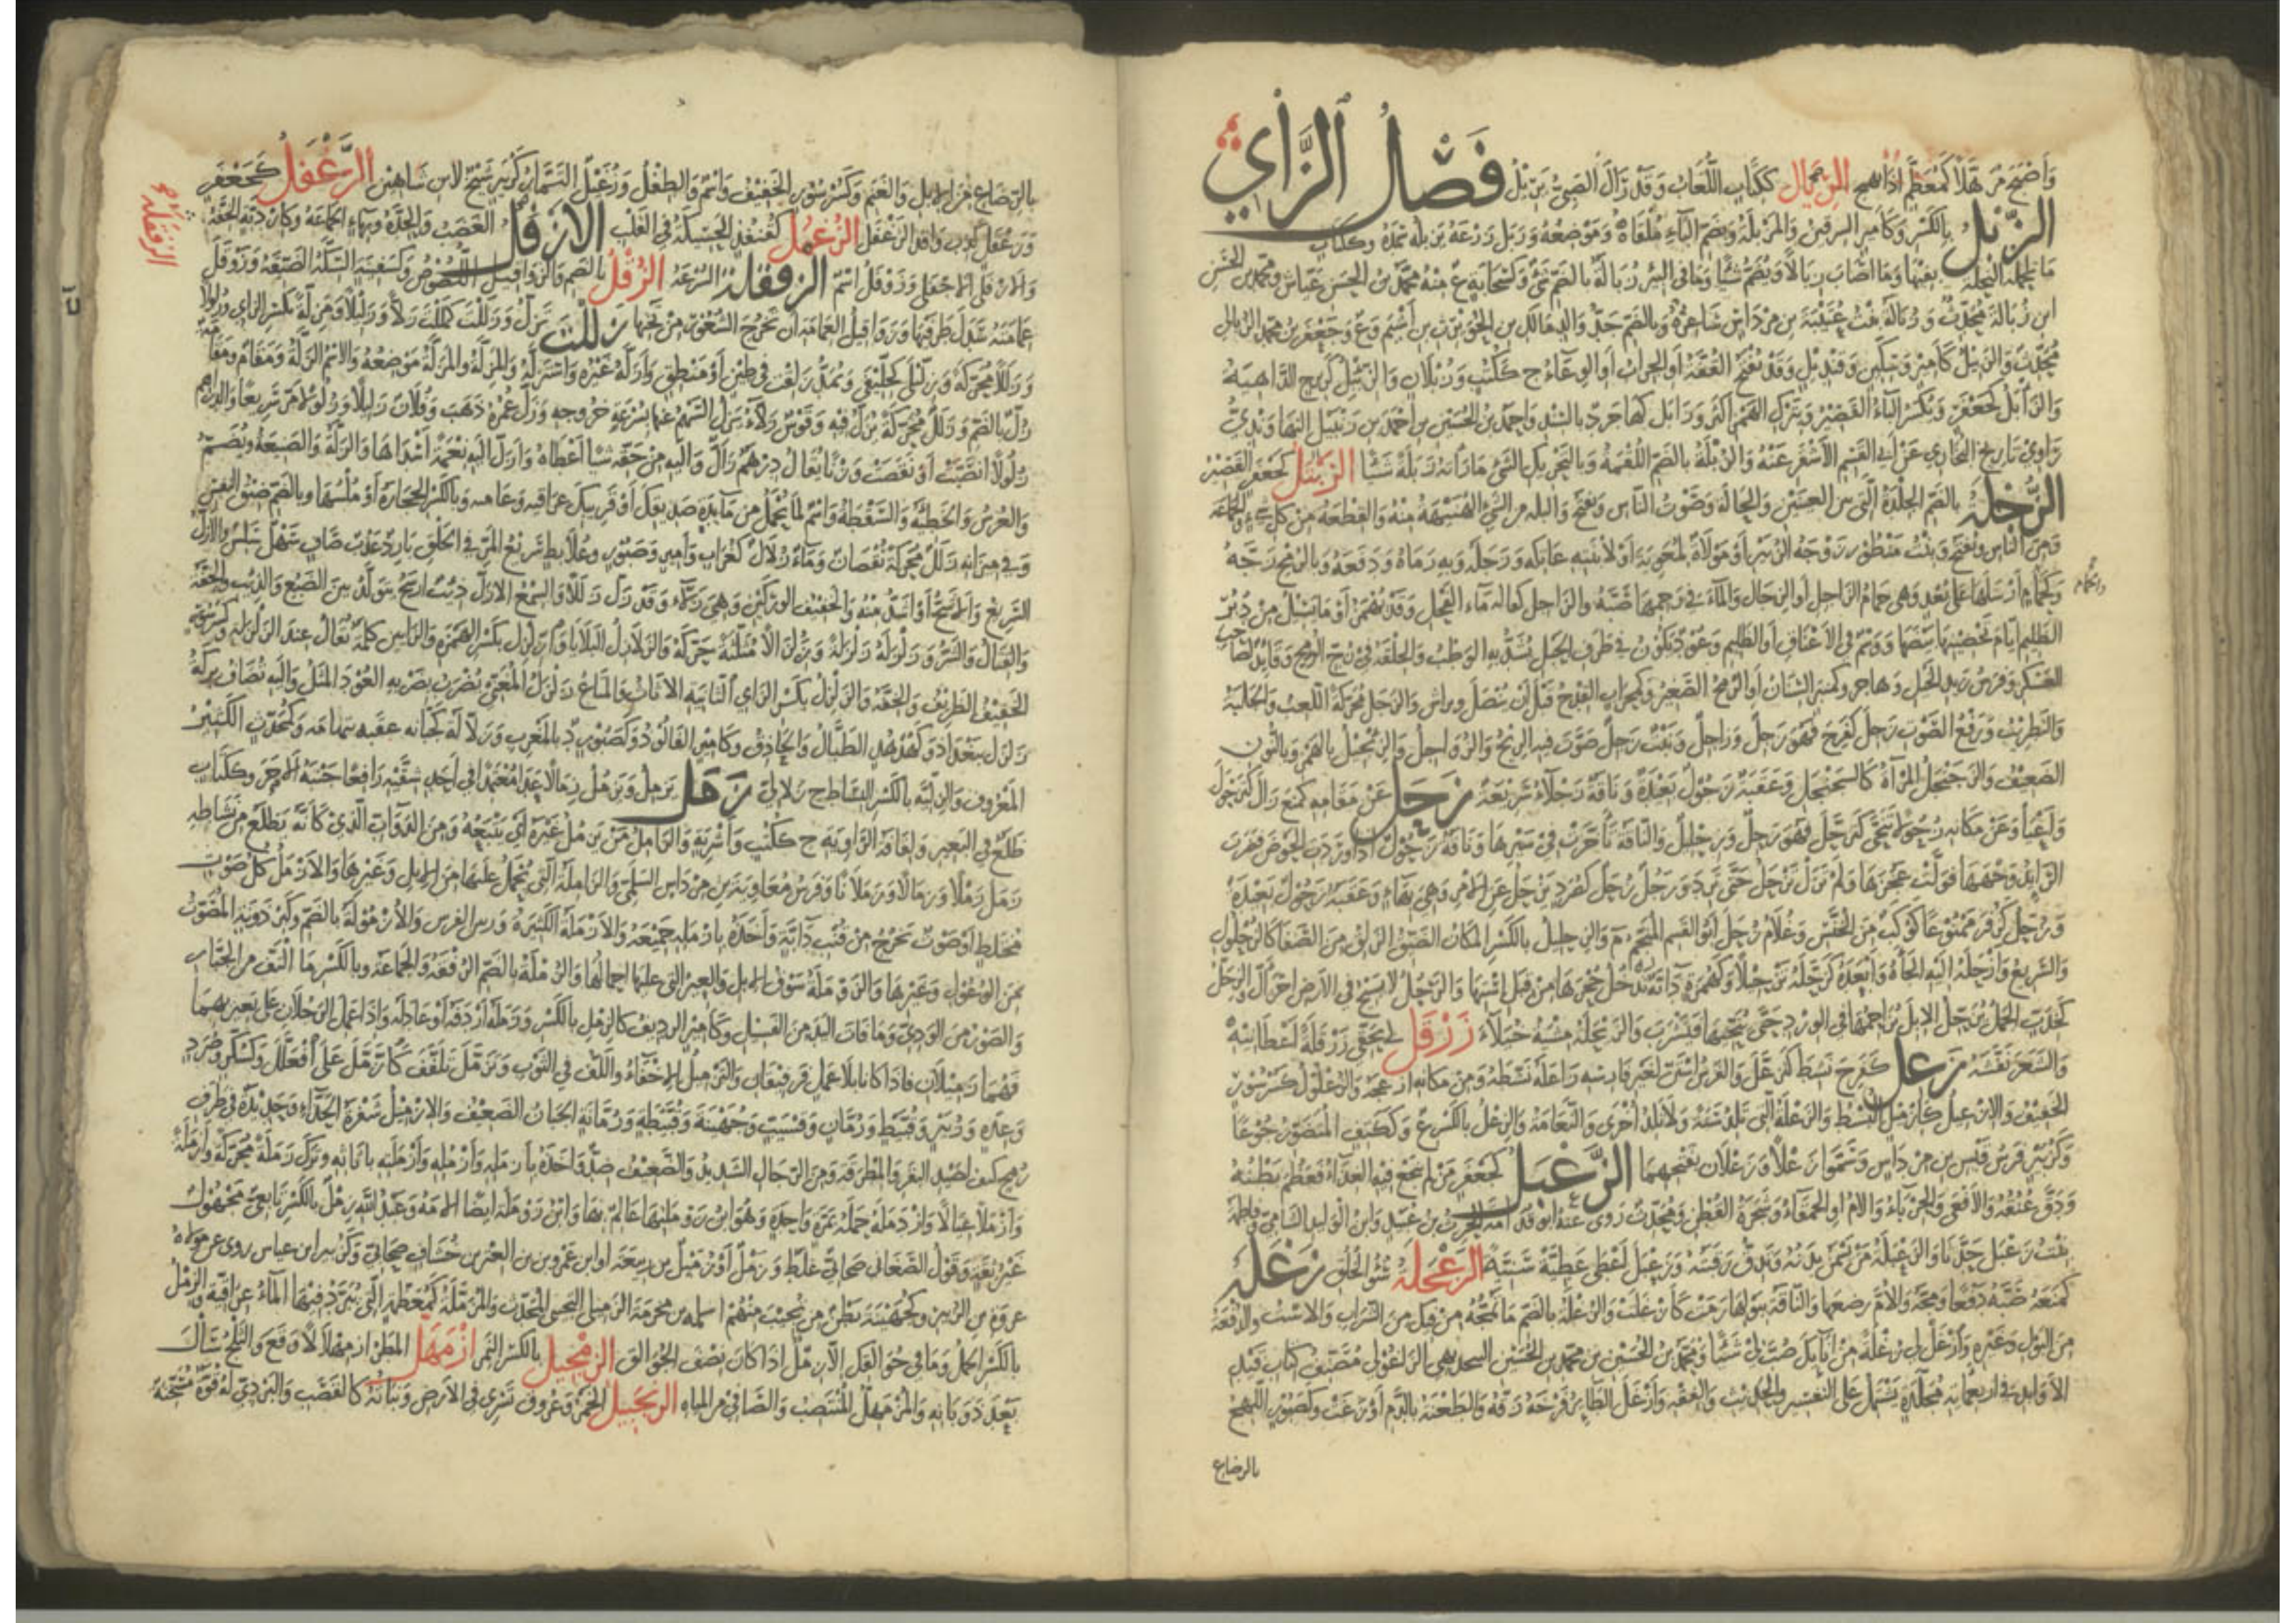 وأضبح مرهلا كمعظم اذا الريال ككتاب اللعاب وقد رال الصبي يريل فصل الزاي
الزبل بالكسر وكأمير السرقين والمزبلة وتضم الباء ملقاه وموضعه وزبل زرعه يزبله سمده وككتاب
ما تحمله النحلة بفيها وما اصاب زبالا ويضم شيئا وما في البئر زبالة بالضم شئ وكسحابة ع منه محمد بن الحسن بن عياش ومحمد بن الحسن
ابن زبالة محدث وزبالة بنت عتيبة بن مرداس شاعرة وبالضم جد والد مالك بن الحويرث بن أشيم وع وجعفر بن محمد الزبالي
محدث والزبيل كأمير وسكين وقنديل وقد يفتح القفة أو الجراب أو الوعاء ج ككتب وزبلان والزئبل كزبرج الداهية
والزأبل كجعفر وتكسر الباء القصير ويترك الهمز اكثر وزابل كهاجر د بالسند واحمد بن الحسين بن أحمد بن زنبيل النهاوندي
راوي تاريخ البخاري عن أبي القسم الأشقر عنه والزبلة بالضم اللقمة وبالتحريك الشئ ما رزأته زبلة شيئا الزبتل كجعفر القصير
الزجلة بالضم الجلدة التي بين العينين والحالة وصوت الناس ويفتح والبلة من الشئ الهنيهة منه والقطعة من كل شئ والجماعة
ومن الناس ويفتح وبنت منظور زوجة الزبير أو مولاة لمعوية أو لابنته عاتكة وزجله وبه رماه ودفعه وبالرمح زجه
والحمام أرسلها على بعد وهي حمام الزاجل أو الزجال والماء في رحمها صبه والزاجل كعالم ماء الفحل وقد يهمز أو ما يسيل من دبر
الظليم أيام تحضينها بيضها ووسم في الأعناق أو الظليم وعود يكون في طرف الحبل يشد به الوطب والحلقة في زج الرمح وقائد
العسكر وفرس زيد الخيل وهاجر وكمنبر السنان أو الرمح الصغير وكمحراب القدح قبل أن ينصل ويراش والزجل محركة اللعب والجلبة
والتطريب ورفع الصوت زجل كفرح فهو زجل وزاجل ونبت زجل صوت فيه الريح والزواجل والزئجيل بالهمز وبالنون
الضعيف والزنجبيل المرآة كالسجنجل وعقبة زجول بعيدة وناقة زجلاء سريعة زحل عن مقامه كمنع زال كتزحول
وأعيا وعن مكانه زحولا تنحى كتزحل فهو زحل وزحليل والناقة تأخرت في سيرها وناقة زحول اذا وردت الحوض فضرب
الذائد وجهها فولت عجزها ولم تزل تزحل حتى ترد ورجل زحل كصرد يزحل عن الامر وهي بهاء وعقبة زحول بعيدة
وزحل كزفر ممنوعا كوكب من الخنس وغلام زحل أبو القسم المنجم م والزحليل بالكسر المكان الضيق الزلق من الصفا كالزحلول
والسريع وأزحله اليه الجأه وأبعده كزحله تزحيلا وكهمزة دابة تدخل جحرها من قبل استها والرجل لا يسيح في الارض والزحل
كخدب الجمل يزحل الابل يزاحمها في الورد حتى ينحيها فيشرب والزحلة مشية خيلاء زرقل لي بحقي زرقلة أعطانيه
والشعر نفشه زعل كفرح نشط كتزعل والفرس استن لغير فارسه وازعله نشطه ومن مكانه ازعجه والزعلول كسرسور
الخفيف والازعيل كازميل النشيط والزعلة التي تلد سنة ولا تلد أخرى والنعامة والزعل بالكسر ع وككتف المتضور جوعا
وكزبير فرس قيس بن مرداس وسموا زعلا وزعلان بفتحهما الزعبل كجعفر من لم ينجع فيه الغذاء فعظم بطنه
ودق عنقه والأفعى والحرباء والأم أو الحمقاء وشجرة القطن ومحدث روى عنه ابو قدامة الحرث بن عبيد وابن الوليد الشامي وفاطمة
بنت زعبل حدثنا والزعبلة من يسمن بدنه وتدق رقبته وزعبل أعطى عطية سنية الزعجلة سوء الخلق زغله
كمنعه صبه دفعا ومجه والأم رضعها والناقة ببولها رمت كأزغلت والزغلة بالضم ما تمجه من فيك من الشراب والاست والدفعة
من البول وغيره وأزغل لي زغلة من انائك صب لي شيئا ومحمد بن الحسين بن محمد بن الحسين الزاغولي مصنف كتاب قيد
الأوابد في اربعمائة مجلدة يشتمل على التفسير والحديث والفقه وأزغل الطائر فرخه زقه والطعنة بالدم أوزعت وكصبور اللهج
بالرضاع
بالرضاع من الابل والغنم وكسرسور الخفيف واسم والطفل وزغيل التمار كزبير شيخ لابن شاهين الزغفل كجعفر
الزفقلة
وزغفل كذب واوقد الزغفل الزغمل كقنفذ الحسيكة في القلب الازفل الغضب والحدة وبهاء الجماعة وكأن دبة الخفة
والازفلى الاجفلى وزوفل اسم الزفقلة السرعة الزقل بالضم والزواقيل اللصوص وكسفينة السكة الضيقة وزوقل
عمامته سدل طرفيها وزواقيل العمامة أن تخرج الشعور من تحتها زللت تزل وزللت كمللت زلا وزليلا ومزلة بكسر الزاي وزلولا
وزللا محركة وزليلى كخليفى ويمد زلقت في طين أو منطق وأزله غيره واستزله والمزلة والمزلة موضعه والاسم الزلة ومقام ومقامة
زل بالضم وزلل محركة يزل فيه وقوس زلاء يزل السهم عنها لسرعة خروجه وزل عمره ذهب وفلان زليلا وزلولا مر سريعا والدراهم
زلولا انصبت أو نقصت وزنا يقال درهم زال واليه من حقه شيئا أعطاه وازل اليه نعمة أسداها والزلة والصنيعة ويضم
والعرس والخطيئة والسقطة واسم لما يحمل من مائدة صديقك أو قريبك عراقية وبالكسر الحجارة أو ملسها وبالضم ضيق النفس
وفي ميزانه زلل محركة نقصان وماء زلال كغراب وأمير وصبور وعلابط سريع المر في الحلق بارد عذب صاف سهل سلس والازل
السريع والأرسح أو اشد منه والخفيف الوركين وهي زلاء وقد زل زللا والسمع الازل ذئب أرسح يتولد بين الضبع والذئب
والقتال والشر وزلزله زلزلة وزلزالا مثلثة حركه والزلازل البلايا وازلزل بكسر الهمزة والزايين كلمة تقال عند الزلازل
الخفيف الظريف والخفة والزلزل بكسر الزاي الثانية الاثاث والمتاع زلزل المغني يضرب بضربه العود المثل واليه تضاف بركة
زلزل ببغداد وكهدهد الطبال والحاذق وكأمير الفالوذ وكصبور د بالمغرب وزلالة كجبانة عقبة بتهامة وكمحدث الكثير
المعروف والزلية بالكسر البساط ج زلالي زمل يزمل ويزمل زمالا عدا معتمدا في أحد شقيه رافعا جنبه الاخر وككتاب
ظلع في البعير ولفافة الراوية ج ككتب وأشربة والزامل من يزمل غيره أي يتبعه ومن الدواب الذي كأنه يظلع من نشاطه
زمل زملا وزمالا وزملانا وفرس معاوية بن مرداس السلمي والزاملة التي يحمل عليها من الابل وغيرها والازمل كل صوت
مختلط أو صوت يخرج من قنب دابة وأخذه بازمله جميعه والازملة الكثيرة ورنين القوس والأزمولة بالضم وكبرذونة المصوت
من الوعول وغيرها والزوملة سوق الابل والعير التي عليها احمالها والزملة بالضم الرفقة والجماعة وبالكسر ما التف من الجبار
والصور من الودي وما فات اليد من الفسيل وكأمير الرديف كالزمل بالكسر وزمله أردفه أو عادله واذا عمل الرجلان على بعيريهما
فهما زميلان فاذا كانا بلا عمل فرفيقان والتزميل الاخفاء واللف في الثوب وتزمل تلفف كازمل على افعل وكسكر وصرد
وعدل وزبير وقبيط ورمان وقسيب وجهينة وقبيطة ورمانة الجبان الضعيف والازميل شفرة الحذاء وحديدة في طرف
رمح لصيد البقر والمطرقة ومن الرجال الشديد والضعيف ضد وأخذه بازمله وأزمله وأزملته باثاثه وترك زملة محركة وأزملة
وازملا عيالا وازدمله حمله بمرة واحدة وهو ابن زوملتها عالم بها وابن زوملة ايضا ابن الامة وعبد الله بن زمل بالكسر تابعي مجهول
غير ثقة وقول الصغاني صحابي غلط وزمل أو زميل بن ربيعة أو ابن عمرو بن العتر بن خشاف صحابي وكزبير ابن عباس روى عن مولاه
عروة بن الزبير وكجهينة بطن من تجيب منهم سلمة بن مخرمة الزميلي التجيبي المحدث والمزملة كمعظمة التي يبرد فيها الماء عراقية والزمل
بالكسر الحمل وما في جوالقك الا زمل اذا كان نصف الجوالق الزمجيل بالكسر النمر ازمهل المطر ازمهلالا وقع والثلج سال
بعد ذوبانه والمزمهل المنتصب والصافي من المياه الزنجبيل الخمر وعروق تسري في الارض ونباته كالقصب والبردي له قوة مسخنة